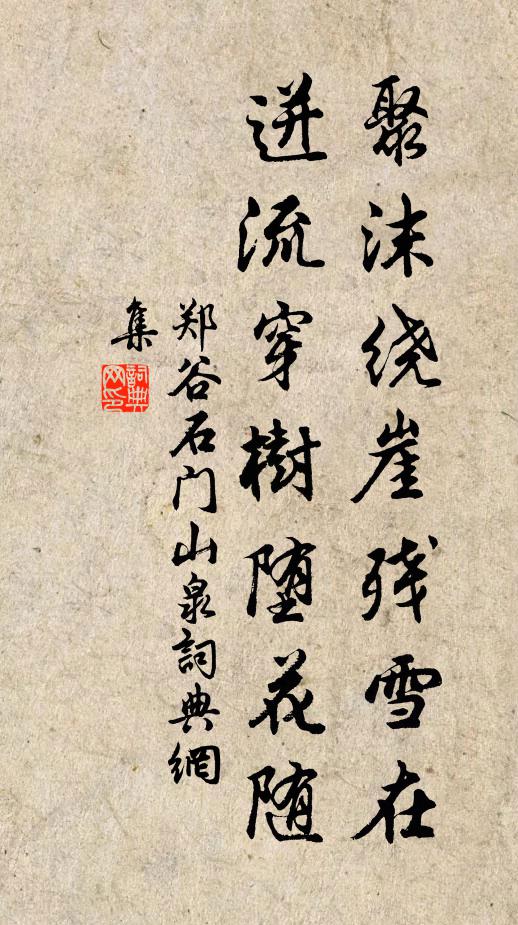 聚沫绕崖残雪在
迸流穿樹堕花随
郑谷石门山泉詞典網
集
詞典
网印